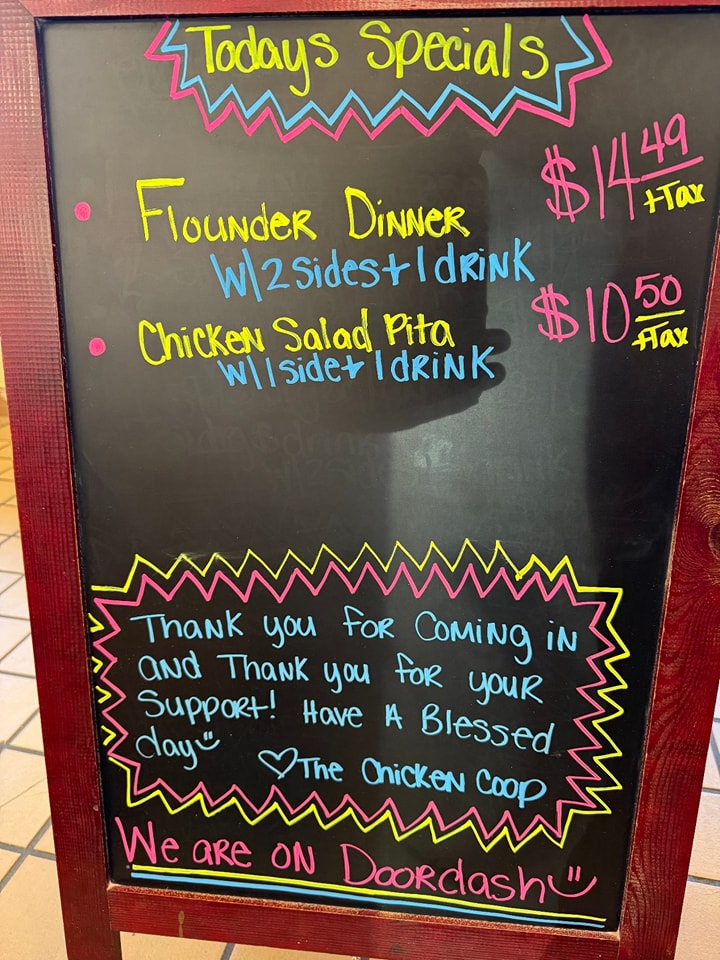 Todays Specials
$14.49
+Tax
• Flounder Dinner
W/2 sides + 1 drink
$10.50
+Tax
• Chicken Salad Pita
W/1 side + 1 drink
Thank you for coming in
and Thank you for your
Support! Have A Blessed
day
♡ The Chicken Coop
We are on Doordash